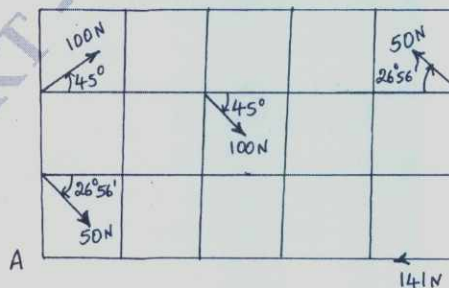 100N
50N
45°
26°56'
45°
100N
26°56'
50N
A
141N